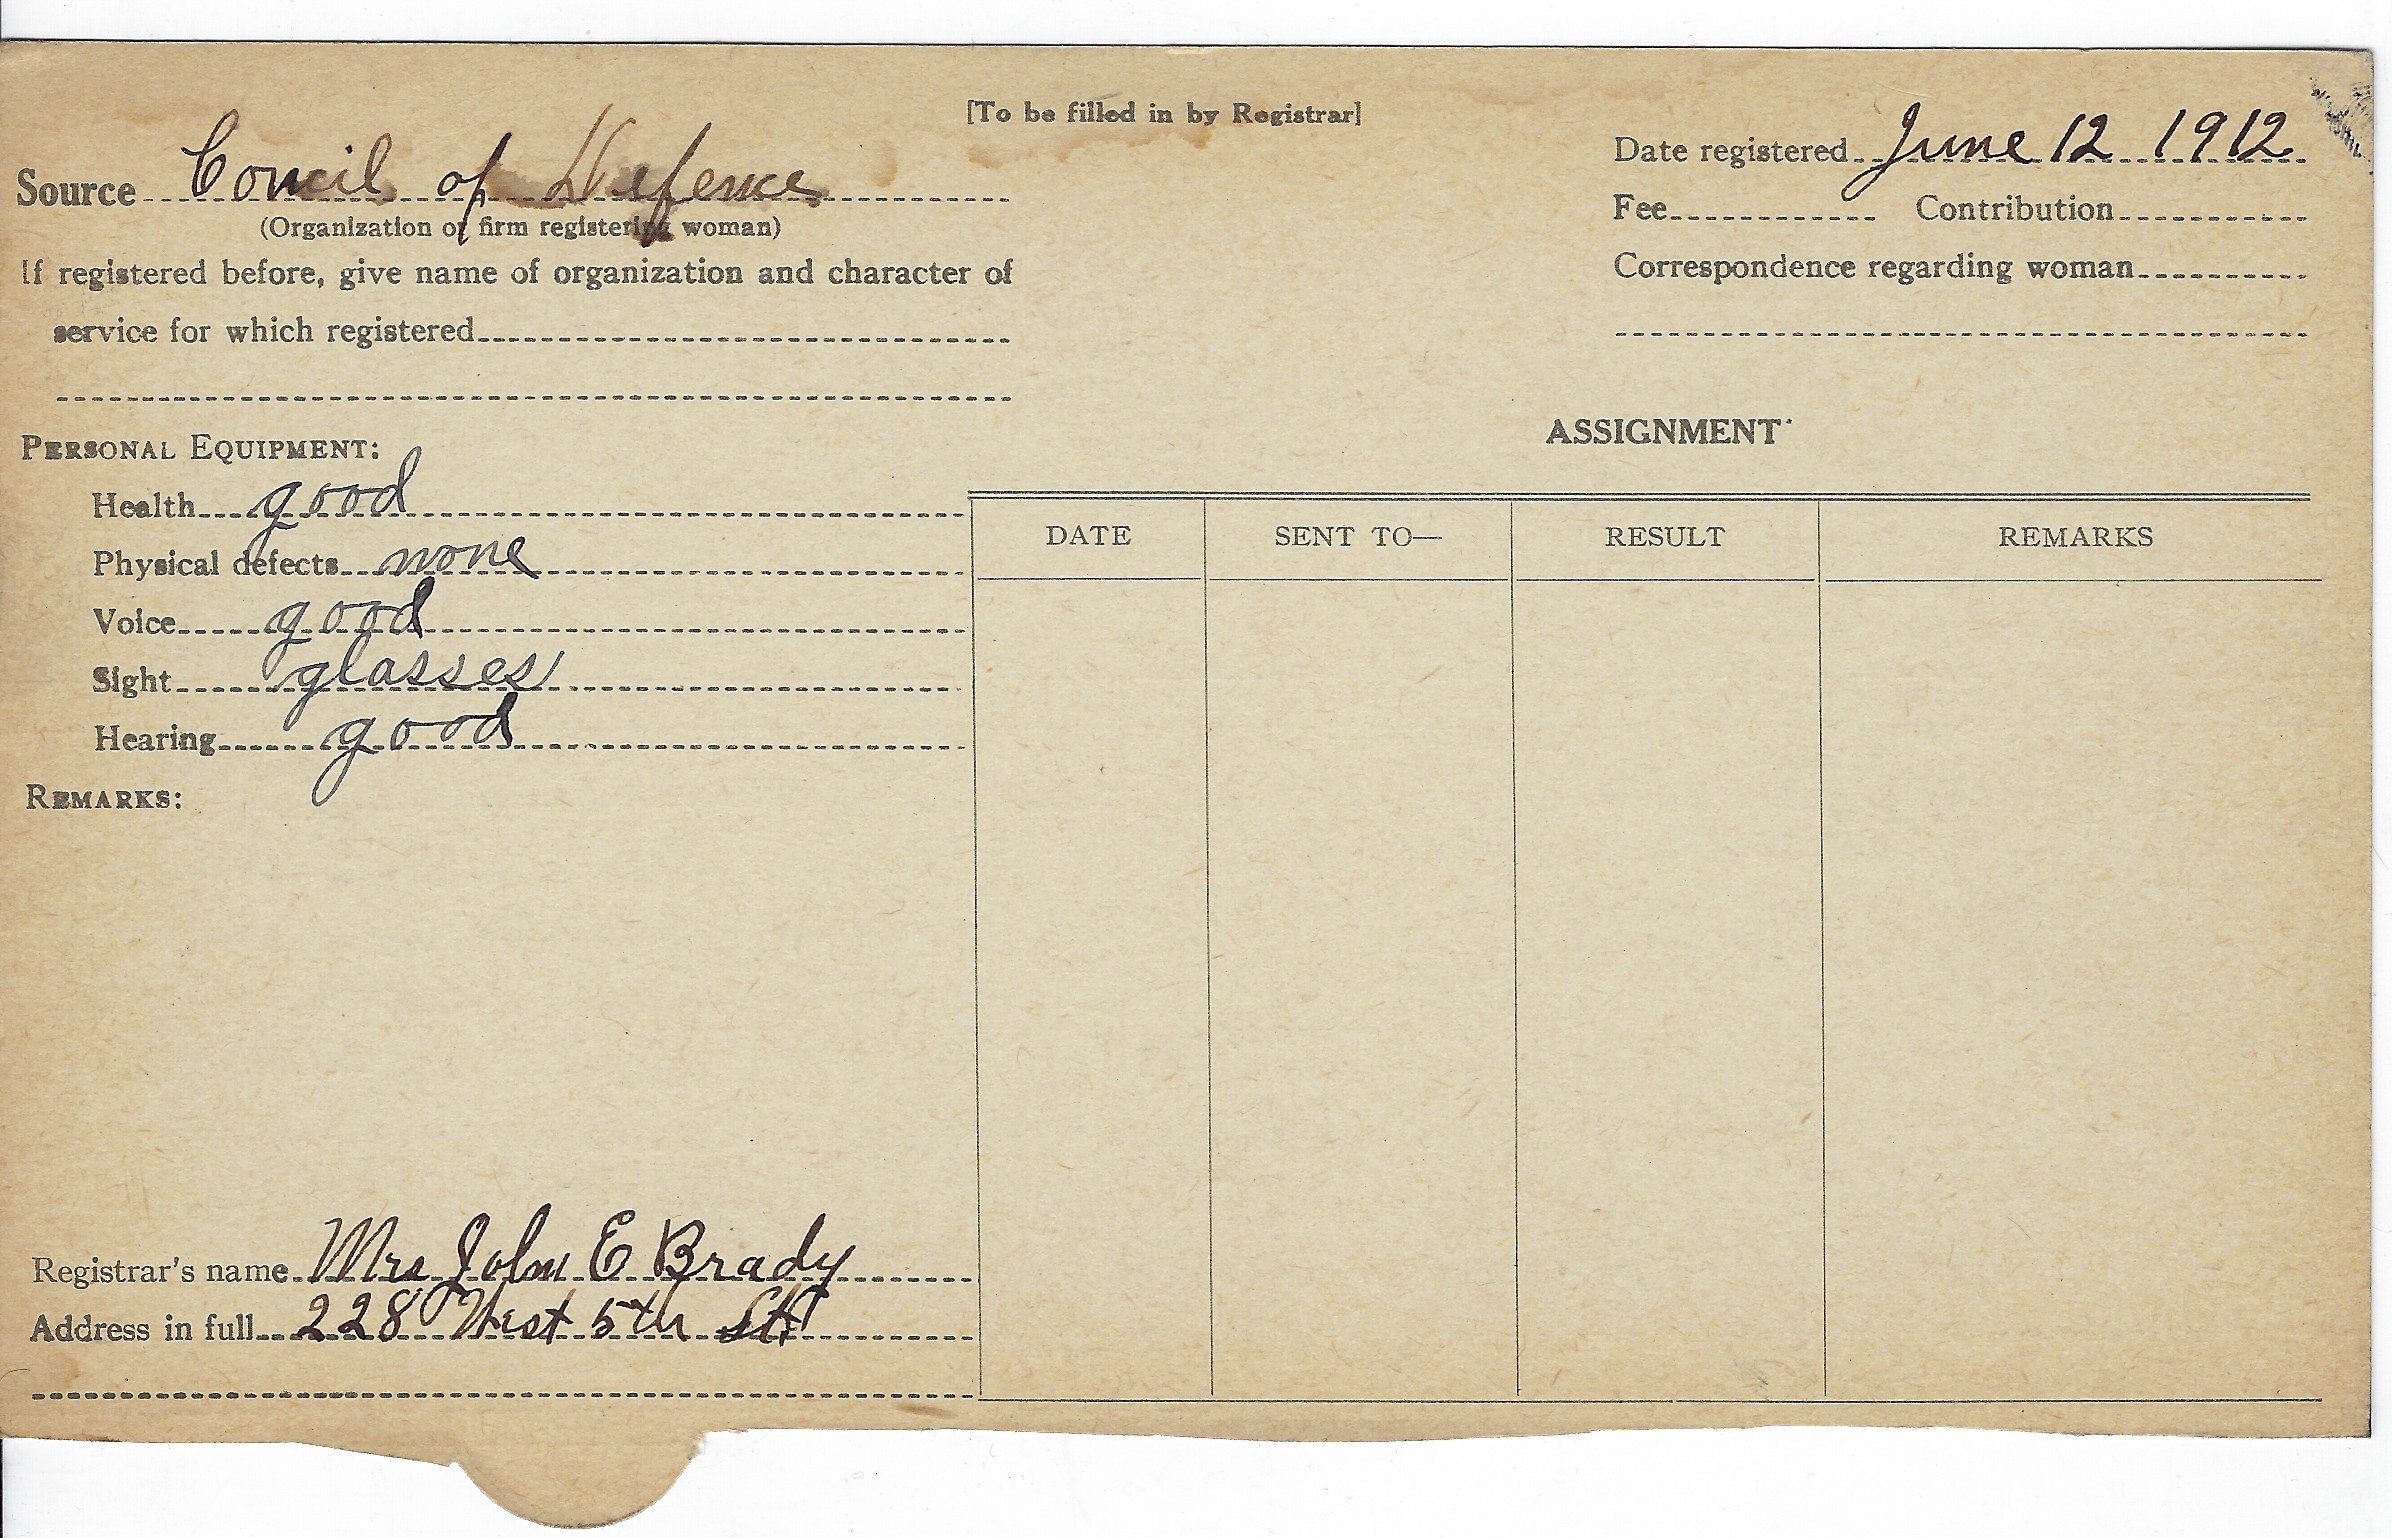 [To be filled in by Registrar]
Source Concil of Defense
(Organization or firm registering woman)
If registered before, give name of organization and character of
service for which registered
Date registered June 12 1912
Fee Contribution
Correspondence regarding woman
PERSONAL EQUIPMENT:
Health good
Physical defects none
Voice good
Sight glasses
Hearing good
REMARKS:
ASSIGNMENT
DATE SENT TO— RESULT REMARKS
Registrar's name Mrs John E Brady
Address in full 228 West 5th St